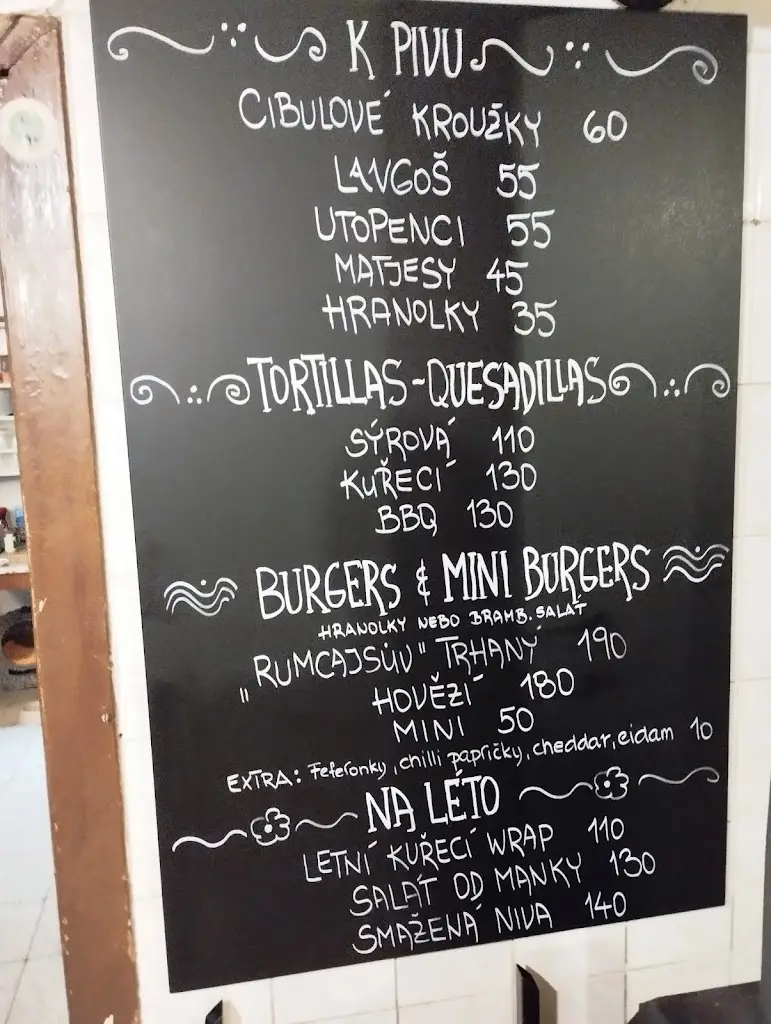 K PIVU
CIBULOVÉ KROUŽKY 60
LANGOŠ 55
UTOPENCI 55
MATJESY 45
HRANOLKY 35
TORTILLAS-QUESADILLAS
SÝROVÁ 110
KUŘECÍ 130
BBQ 130
BURGERS & MINI BURGERS
HRANOLKY NEBO BRAMB. SALÁT
"RUMCAJSŮV" TRHANÝ 190
HOVĚZÍ 180
MINI 50
EXTRA: Feferonky, chilli papričky, cheddar, eidam 10
NA LÉTO
LETNÍ KUŘECÍ WRAP 110
SALÁT OD MANKY 130
SMAŽENÁ NIVA 140